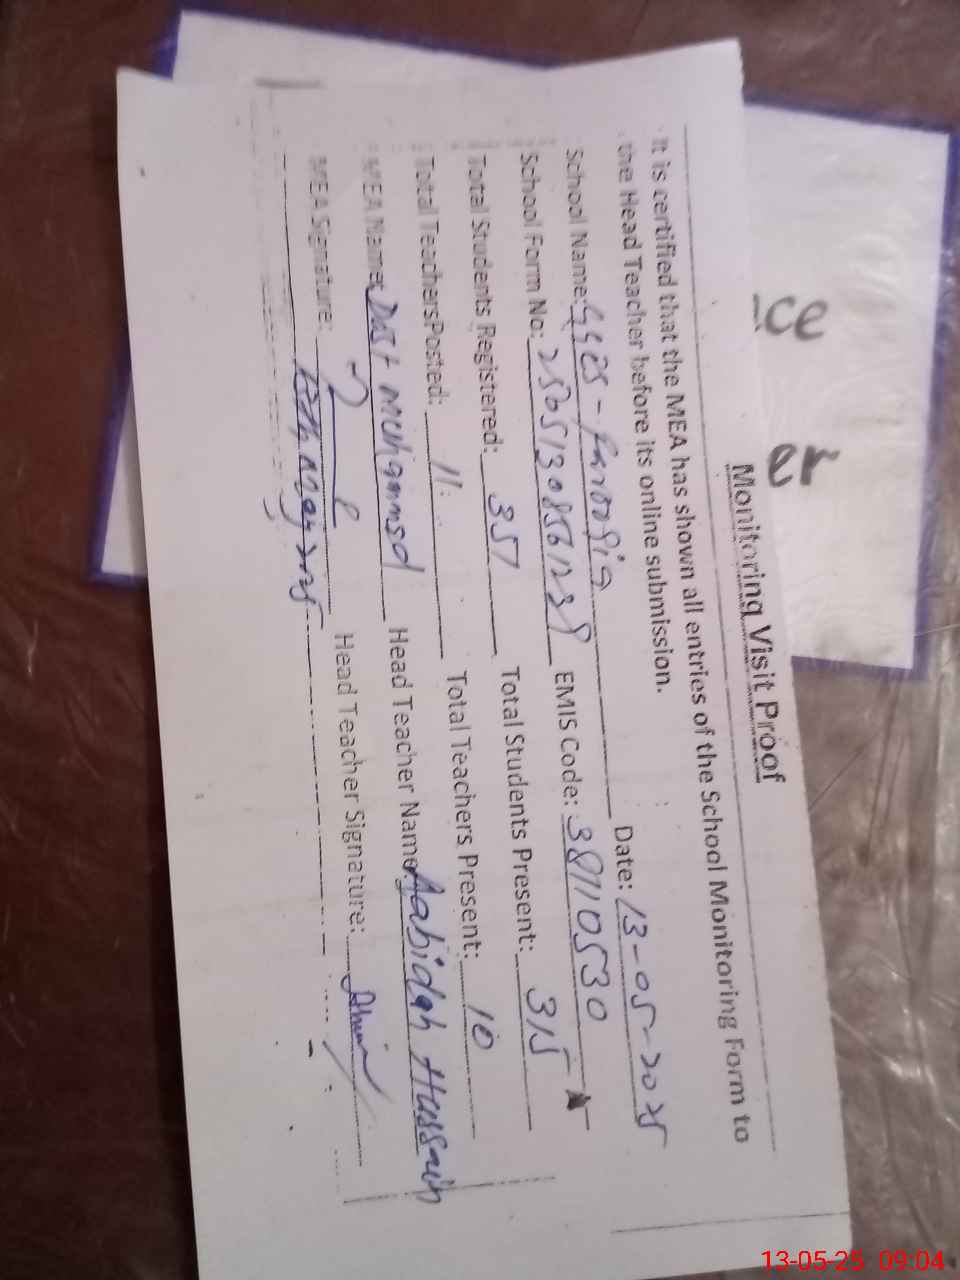 Monitoring Visit Proof
It is certified that the MEA has shown all entries of the School Monitoring Form to
the Head Teacher before its online submission.
School Name: GGES - farooqia Date: 13-05-2025
School Form No: EMIS Code: 38110530
Total Students Registered: 351 Total Students Present: 315
Total TeachersPosted: 11 Total Teachers Present: 10
MEA Name: Dost Muhammad Head Teacher Name: Aabidah Hussain
MEA Signature: Head Teacher Signature:
ce
13-05-25 09:04